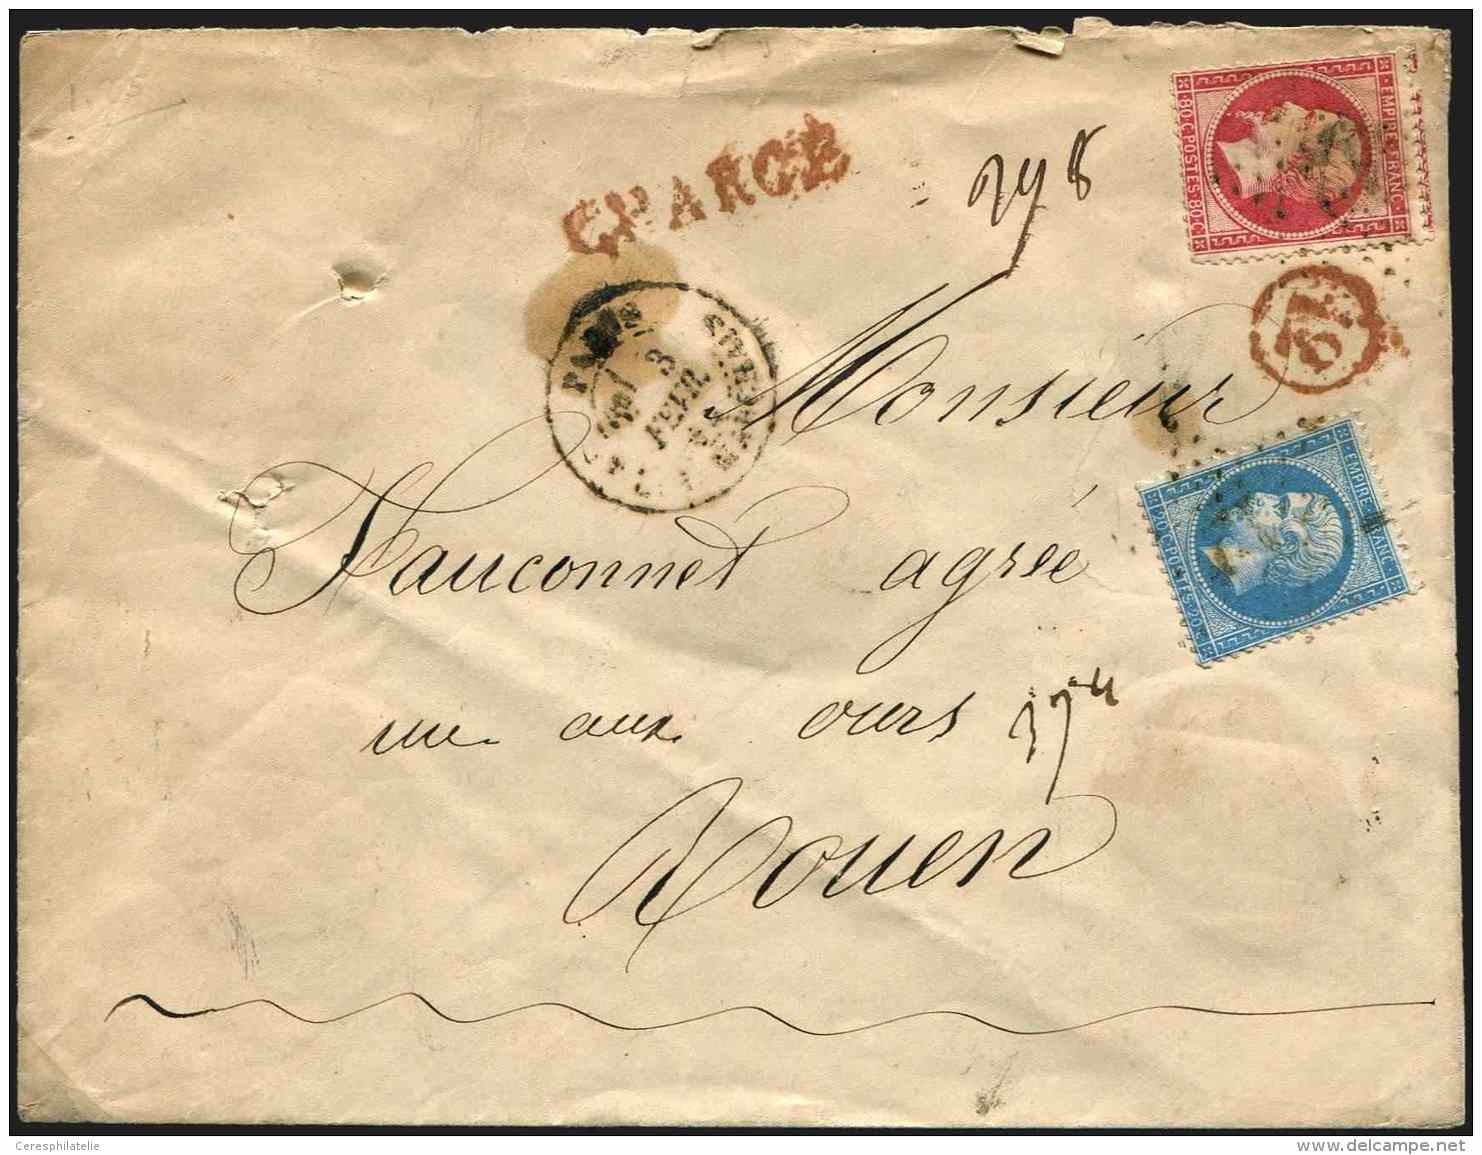 CHARGE
298
EMPIRE FRANC
80·C·POSTES·80·C
PARIS
3
FEVR
Monsieur
EMPIRE FRANC
20·C·POSTES·20·C
Fauconnet agrée
rue aux ours
Rouen
Ceresphilatelie
www.delcampe.net